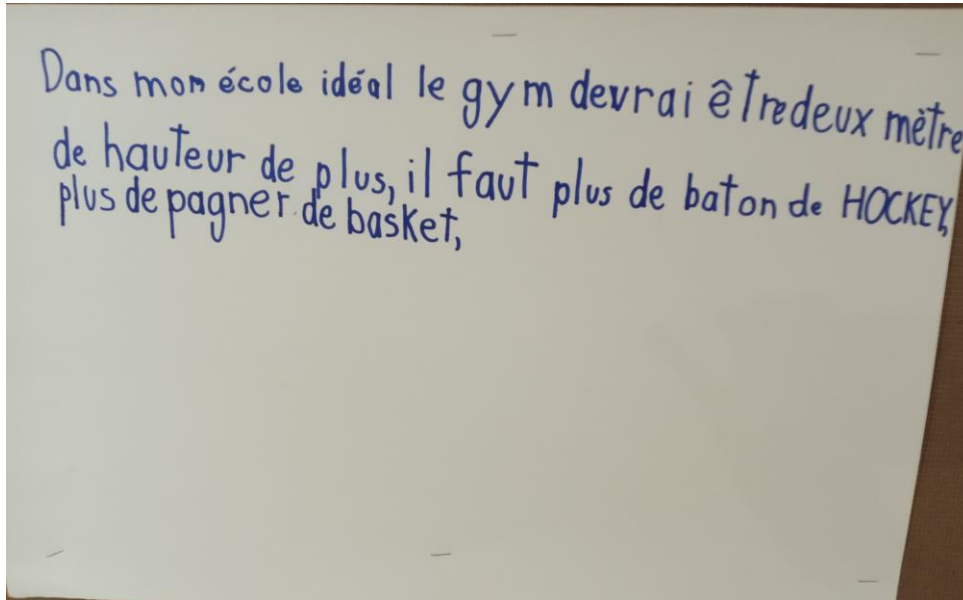 Dans mon école idéal le gym devrai être deux mètre
de hauteur de plus, il faut plus de baton de HOCKEY,
plus de pagner de basket,